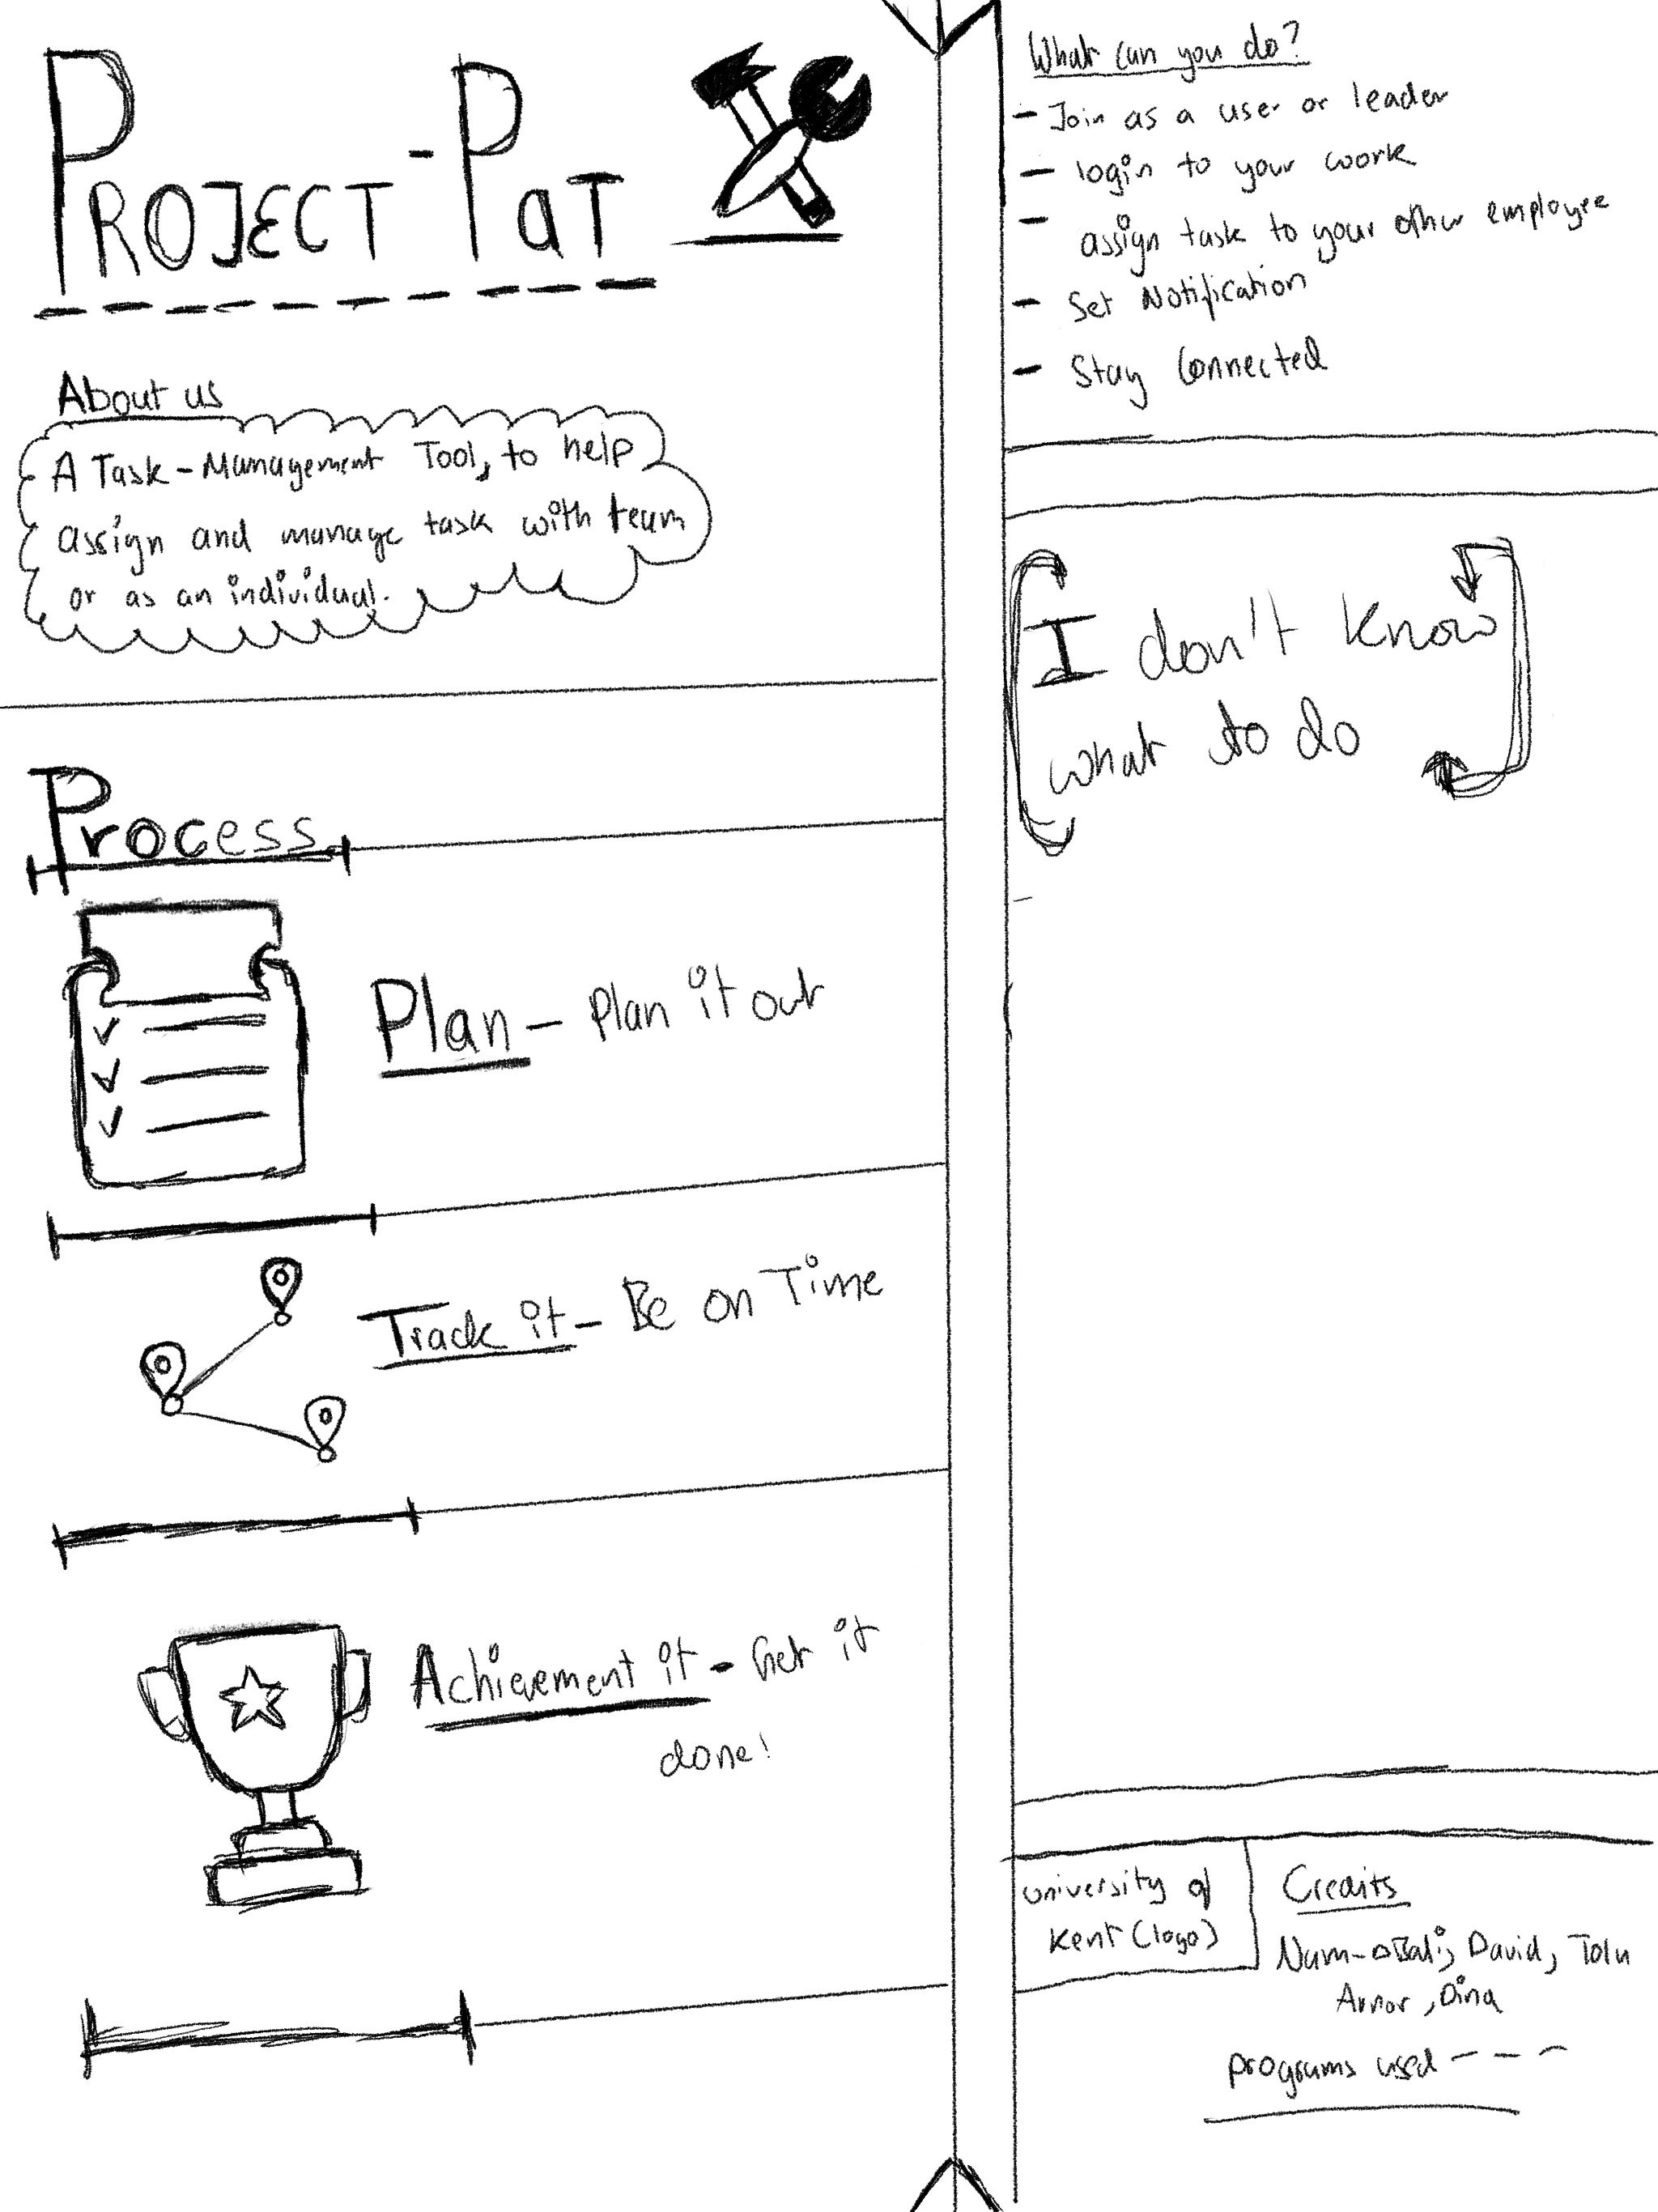 PROJECT-PaT
About us
A Task-Management Tool, to help
assign and manage task with team
or as an individual.
Process
Plan - Plan it out
Track it - Be on Time
Achievement it - Get it
done!
What can you do?
- Join as a user or leader
- login to your work
- assign task to your other employee
- Set Notification
- Stay Connected
I don't know
what to do
University of
Kent (logo)
Credits
David, Tolu
Dina
programs used - - -